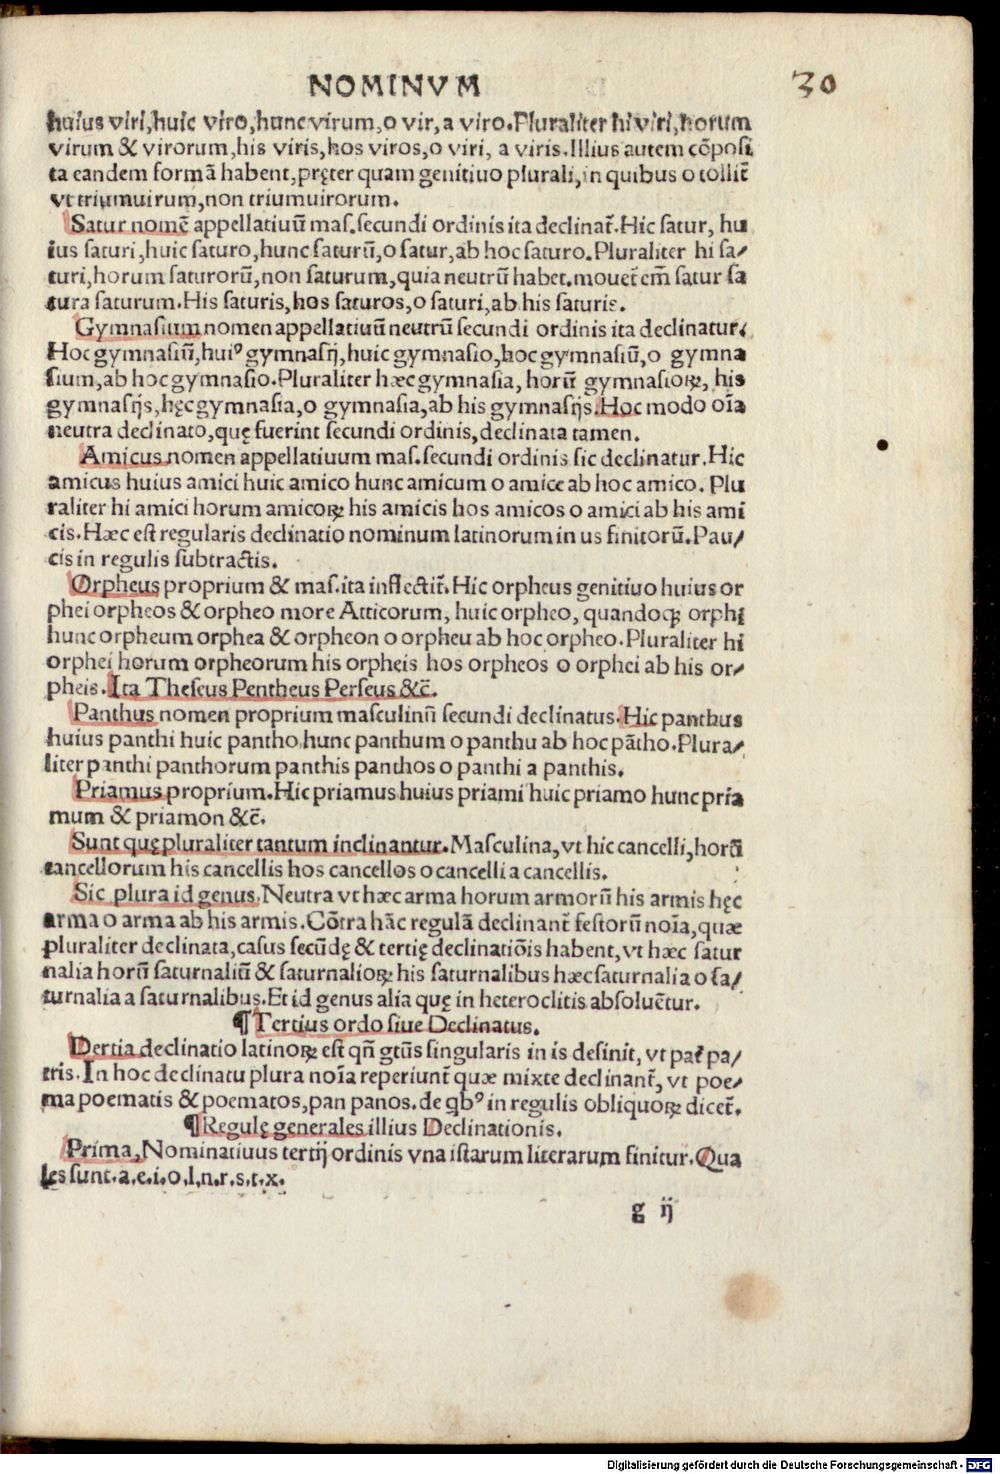 NOMINVM 30
huius viri, huic viro, hunc virum, o vir, a viro. Pluraliter hi viri, horum
virum & virorum, his viris, hos viros, o viri, a viris. Illius autem cõposi
ta eandem formã habent, pręter quam genitiuo plurali, in quibus o tollit̃
vt triumuirum, non triumuirorum.
Satur nomẽ appellatiuũ mas. secundi ordinis ita declinat̃. Hic satur, hu
ius saturi, huic saturo, hunc saturũ, o satur, ab hoc saturo. Pluraliter hi sa/
turi, horum saturorũ, non saturum, quia neutrũ habet. mouet̃ em̃ satur sa
tura saturum. His saturis, hos saturos, o saturi, ab his saturis.
Gymnasium nomen appellatiuũ neutrũ secundi ordinis ita declinatur.
Hoc gymnasiũ, huiꝰ gymnasij, huic gymnasio, hoc gymnasiũ, o gymna
sium, ab hoc gymnasio. Pluraliter hæc gymnasia, horũ gymnasioꝝ, his
gymnasijs, hęc gymnasia, o gymnasia, ab his gymnasijs. Hoc modo oĩa
neutra declinato, quę fuerint secundi ordinis, declinata tamen.
Amicus nomen appellatiuum mas. secundi ordinis sic declinatur. Hic
amicus huius amici huic amico hunc amicum o amice ab hoc amico. Plu
raliter hi amici horum amicoꝝ his amicis hos amicos o amici ab his ami
cis. Hæc est regularis declinatio nominum latinorum in us finitorũ. Pau/
cis in regulis subtractis.
Orpheus proprium & mas. ita inflectit̃. Hic orpheus genitiuo huius or
phei orpheos & orpheo more Atticorum, huic orpheo, quandoqꝫ orphi
hunc orpheum orphea & orpheon o orpheu ab hoc orpheo. Pluraliter hi
orphei horum orpheorum his orpheis hos orpheos o orphei ab his or/
pheis. Ita Theseus Pentheus Perseus &c̃.
Panthus nomen proprium masculinũ secundi declinatus. Hic panthus
huius panthi huic pantho hunc panthum o panthu ab hoc pãtho. Plura/
liter panthi panthorum panthis panthos o panthi a panthis.
Priamus proprium. Hic priamus huius priami huic priamo hunc pria
mum & priamon &c̃.
Sunt quę pluraliter tantum inclinantur. Masculina, vt hic cancelli, horũ
cancellorum his cancellis hos cancellos o cancelli a cancellis.
Sic plura id genus. Neutra vt hæc arma horum armorũ his armis hęc
arma o arma ab his armis. Cõtra hãc regulã declinant̃ festorũ noĩa, quæ
pluraliter declinata, casus secũdę & tertię declinatiõis habent, vt hæc satur
nalia horũ saturnaliũ & saturnalioꝝ his saturnalibus hæc saturnalia o sa/
turnalia a saturnalibus. Et id genus alia quę in heteroclitis absoluẽtur.
¶ Tertius ordo siue Declinatus.
Dertia declinatio latinoꝝ est qñ gtũs singularis in is desinit, vt pat̃ pa/
tris. In hoc declinatu plura noĩa reperiunt̃ quæ mixte declinant̃, vt poe/
ma poematis & poematos, pan panos. de qbꝰ in regulis obliquoꝝ dicet̃.
¶ Regulę generales illius Declinationis.
Prima, Nominatiuus tertij ordinis vna istarum literarum finitur. Qua
les sunt. a. e. i. o. l. n. r. s. t. x.
g ij
Digitalisierung gefördert durch die Deutsche Forschungsgemeinschaft - DFG